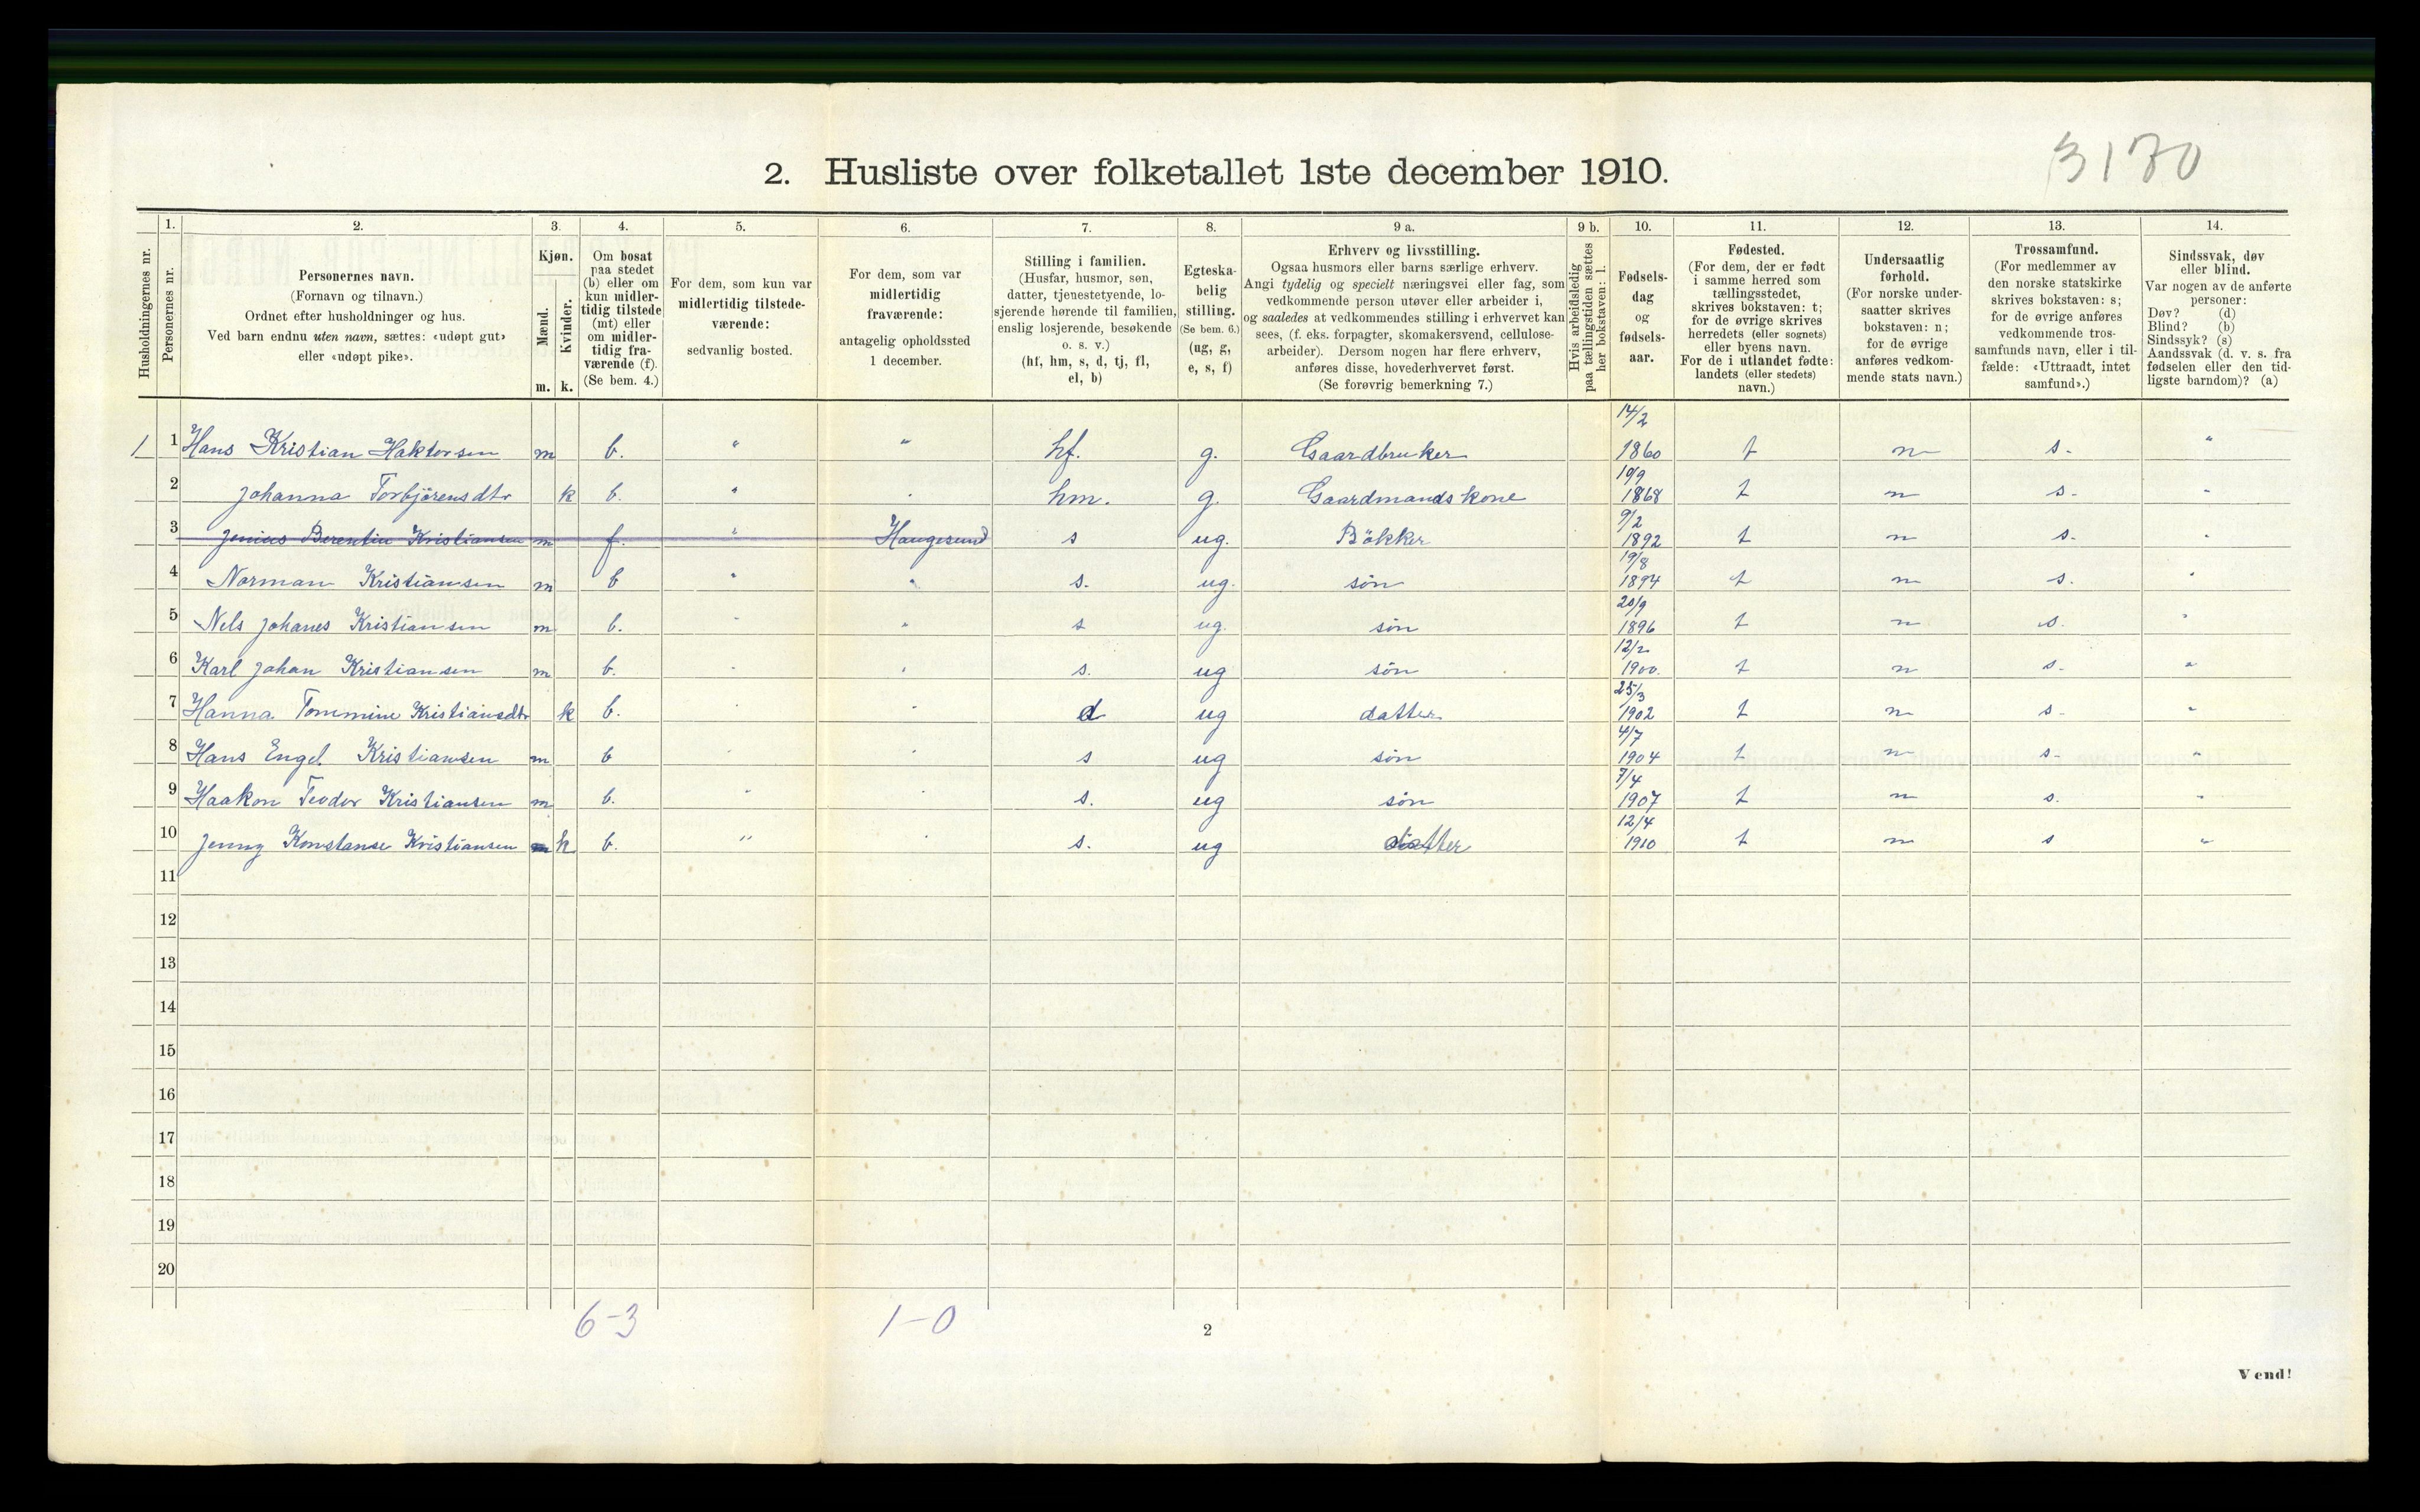 3170
2. Husliste over folketallet 1ste december 1910.
Husholdningernes nr.
1. Personernes nr.
2. Personernes navn.
(Fornavn og tilnavn.)
Ordnet efter husholdninger og hus.
Ved barn endnu uten navn, sættes: «udøpt gut»
eller «udøpt pike».
3. Kjøn.
Mænd. m.
Kvinder. k.
4. Om bosat
paa stedet
(b) eller om
kun midler-
tidig tilstede
(mt) eller
om midler-
tidig fra-
værende (f).
(Se bem. 4.)
5. For dem, som kun var
midlertidig tilstede-
værende:
sedvanlig bosted.
6. For dem, som var
midlertidig
fraværende:
antagelig opholdssted
1 december.
7. Stilling i familien.
(Husfar, husmor, søn,
datter, tjenestetyende, lo-
sjerende hørende til familien,
enslig losjerende, besøkende
o. s. v.)
(hf, hm, s, d, tj, fl,
el, b)
8. Egteska-
belig
stilling.
(Se bem. 6.)
(ug, g,
e, s, f)
9 a. Erhverv og livsstilling.
Ogsaa husmors eller barns særlige erhverv.
Angi tydelig og specielt næringsvei eller fag, som
vedkommende person utøver eller arbeider i,
og saaledes at vedkommendes stilling i erhvervet kan
sees, (f. eks. forpagter, skomakersvend, cellulose-
arbeider). Dersom nogen har flere erhverv,
anføres disse, hovederhvervet først.
(Se forøvrig bemerkning 7.)
9 b. Hvis arbeidsledig
paa tællingstiden sættes
her bokstaven: l.
10. Fødsels-
dag
og
fødsels-
aar.
11. Fødested.
(For dem, der er født
i samme herred som
tællingsstedet,
skrives bokstaven: t;
for de øvrige skrives
herredets (eller sognets)
eller byens navn.
For de i utlandet fødte:
landets (eller stedets)
navn.)
12. Undersaatlig
forhold.
(For norske under-
saatter skrives
bokstaven: n;
for de øvrige
anføres vedkom-
mende stats navn.)
13. Trossamfund.
(For medlemmer av
den norske statskirke
skrives bokstaven: s;
for de øvrige anføres
vedkommende tros-
samfunds navn, eller i til-
fælde: «Uttraadt, intet
samfund».)
14. Sindssvak, døv
eller blind.
Var nogen av de anførte
personer:
Døv? (d)
Blind? (b)
Sindssyk? (s)
Aandssvak (d. v. s. fra
fødselen eller den tid-
ligste barndom)? (a)
1 1 Hans Kristian Haktorsen m b. " " hf. g. Gaardbruker 14/2 1860 t n s. "
2 Johanna Torbjörensdtr k b. " hm. g. Gaardmandskone 19/9 1868 t n s. "
3 Jenius Berentin Kristiansen m f. " Haugesund s ug. Bökker 9/2 1892 t n s. "
4 Norman Kristiansen m b " " s. ug. sön 19/8 1894 t n s. "
5 Nels Johanes Kristiansen m b. " " s ug. sön 20/9 1896 t n s. "
6 Karl Johan Kristiansen m b. " " s. ug sön 12/2 1900. t n s. "
7 Hanna Tommine Kristiansdtr k b. " " d ug datter 25/3 1902 t n s. "
8 Hans Engel Kristiansen m b " " s ug sön 4/7 1904 t n s. "
9 Haakon Teodor Kristiansen m b. " " s. ug sön 7/4 1907 t n s. "
10 Jenny Konstanse Kristiansen k b. " " s. ug datter 12/4 1910 t n s "
11
12
13
14
15
16
17
18
19
20
6-3 1-0
2
Vend!